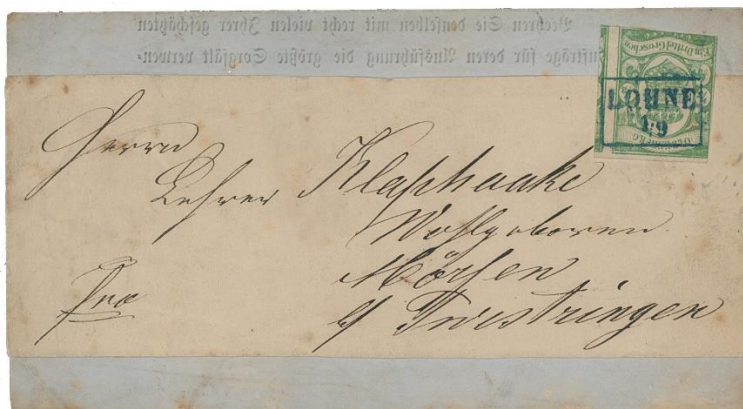 Beehren Sie denselben mit recht vielen Ihrer geschätzten
Aufträge für deren Ausführung die größte Sorgfalt verwen-
Ein Drittel Groschen
LOHNE
1/9
OLDENBURG
Herrn
Lehrer Klaphaake
Wohlgeboren
Mörsen
b/ Twistringen
frco